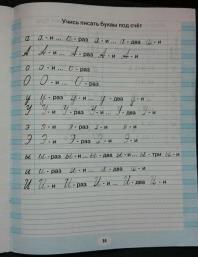 Учись писать буквы под счёт
а а - и ... а - раз а - и ... а - два а - и
А А - и ... А - раз А - и А - и
о о - и ... о - раз
О О - и ... О - раз
у у - раз у - и ... у - два у - и
У У - и У - раз У - и ... У - два У - и
э э - и э - раз э - и э - и
Э Э - и Э - раз Э - и Э - и
ы ы - раз ы - и ... ы - два ы - и ы - три ы - и
и и - раз и - и ... и - два и - и
И И - и И - раз И - и ... И - два И - и